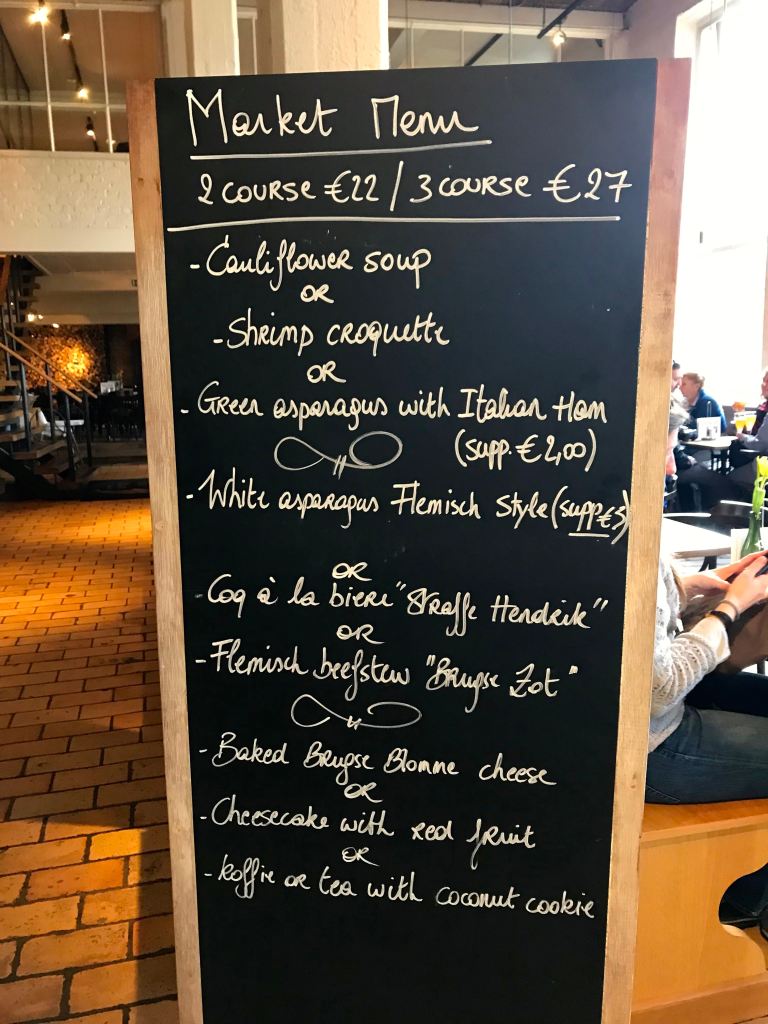 Market Menu
2 COURSE €22 / 3 COURSE €27
- Cauliflower soup
OR
- Shrimp croquette
OR
- Green asparagus with Italian Ham
(supp. €2,00)
- White asparagus Flemisch Style (supp €3)
OR
- Coq à la bière "Straffe Hendrik"
OR
- Flemisch beefstew "Brugse Zot"
- Baked Brugse Blomme cheese
OR
- Cheesecake with red fruit
OR
- koffie or tea with coconut cookie